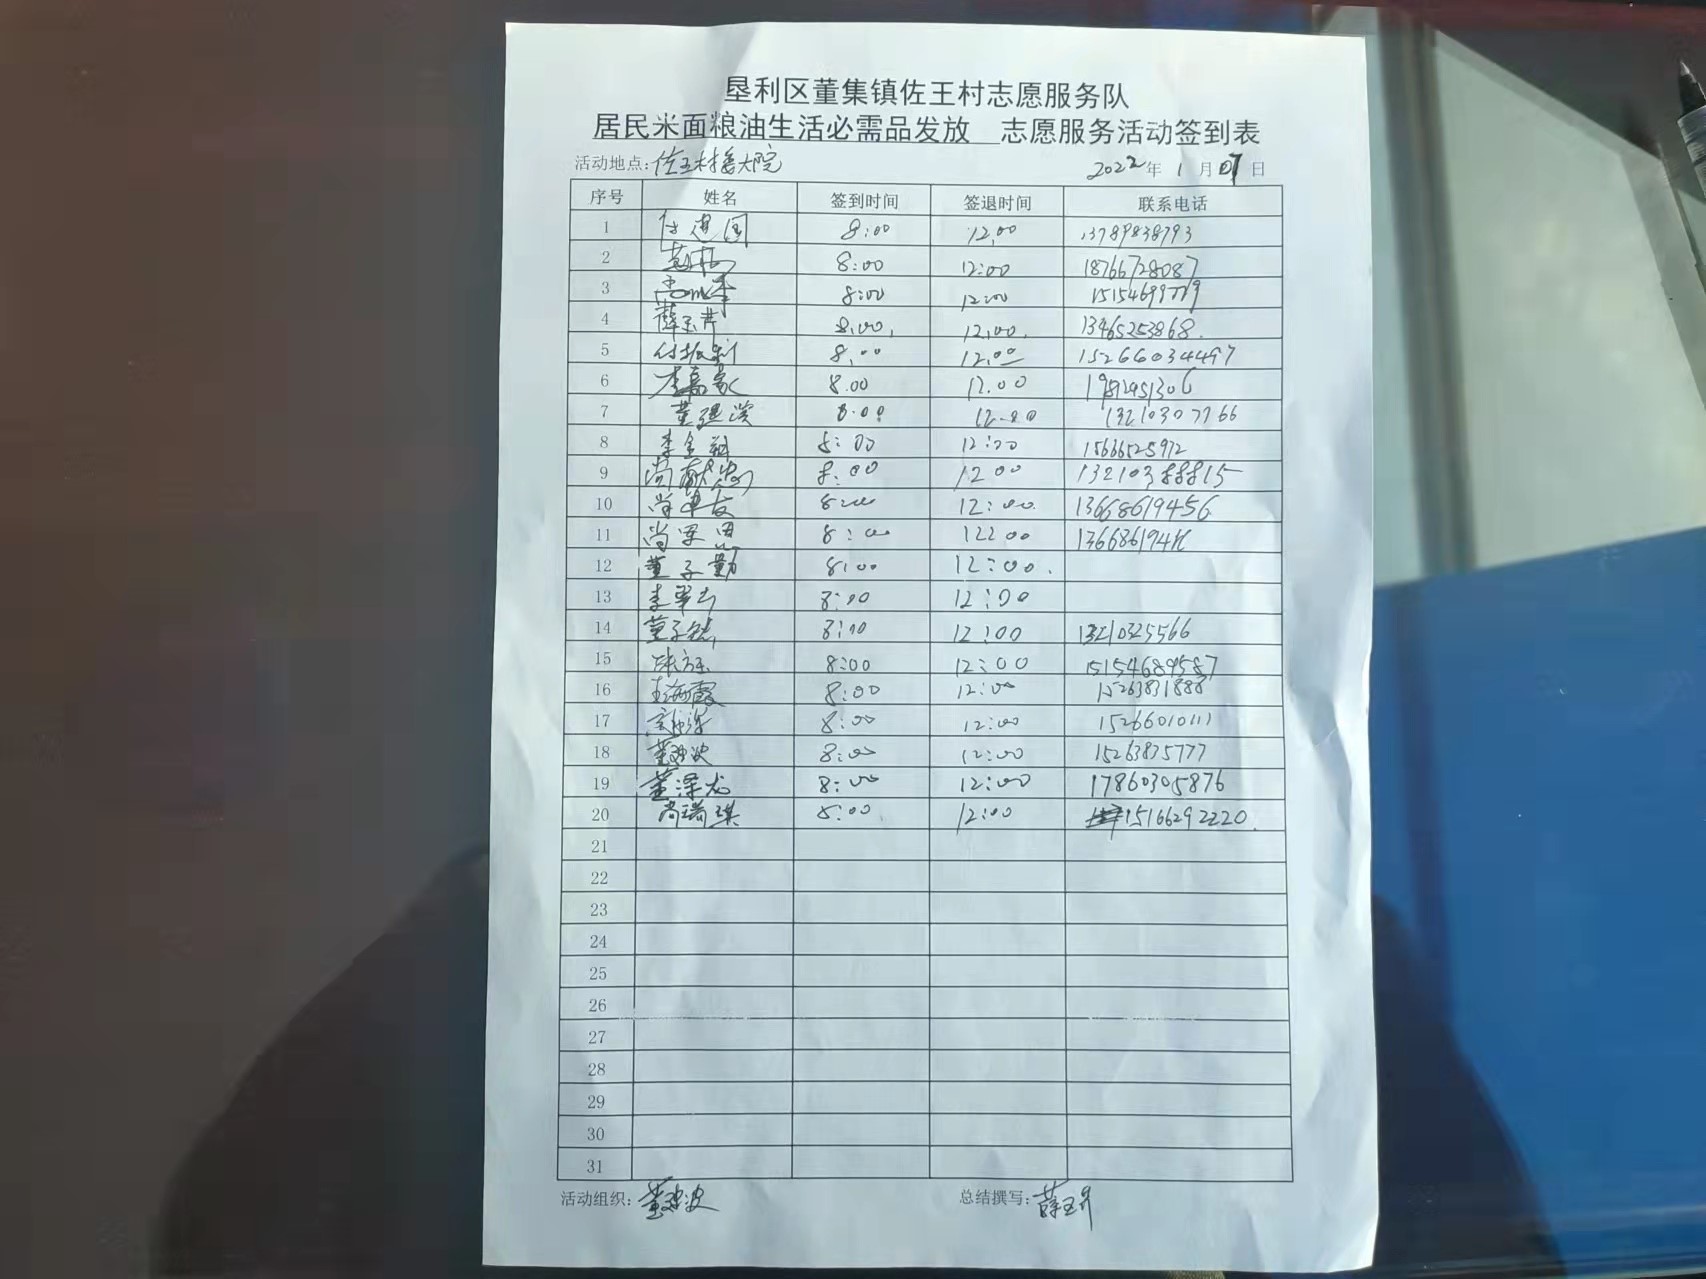 垦利区董集镇佐王村志愿服务队
居民米面粮油生活必需品发放 志愿服务活动签到表
活动地点: 佐王村 大院 2022年 1月07日
序号 姓名 签到时间 签退时间 联系电话
1 8:00 12:00 13789838793
2 8:00 12:00 18766728087
3 8:00 12:00
4 薛玉芹 8:00 12:00 13465253868
5 8:00 12:00 15266034497
6 李嘉家 8.00 12.00
7 8:00 12:00 13210307766
8 李金 8:00 12:00 15666525912
9 尚献 8:00 12:00 13210388815
10 尚 友 8:00 12:00 13668619456
11 尚 8:00 12:00
12 董子勤 8:00 12:00
13 李翠 8:00 12:00
14 董子 8:00 12:00 13210325566
15 8:00 12:00 15154689587
16 王海霞 8:00 12:00 15263831888
17 8:00 12:00 15266010111
18 董 波 8:00 12:00 15263835777
19 董泽龙 8:00 12:00 17860305876
20 尚瑞琪 8:00 12:00 15166292220
21
22
23
24
25
26
27
28
29
30
31
活动组织: 董 波 总结撰写: 薛玉芹